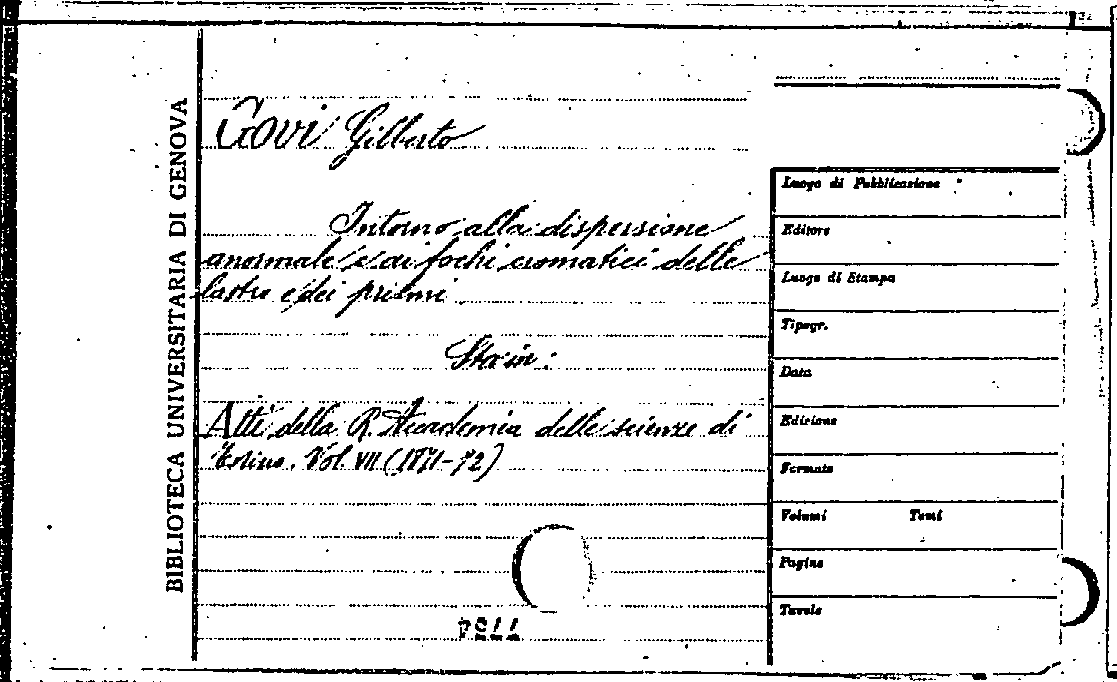 BIBLIOTECA UNIVERSITARIA DI GENOVA
Govi Gilberto
Intorno alla dispersione
anormale e ai fochi cromatici delle
lastre e dei prismi
Sta in:
Atti della R. Accademia delle scienze di
Torino. Vol. VII (1871-72)
Luogo di Pubblicazione
Editore
Luogo di Stampa
Tipogr.
Data
Edizione
Formato
Volumi Tomi
Pagine
Tavole